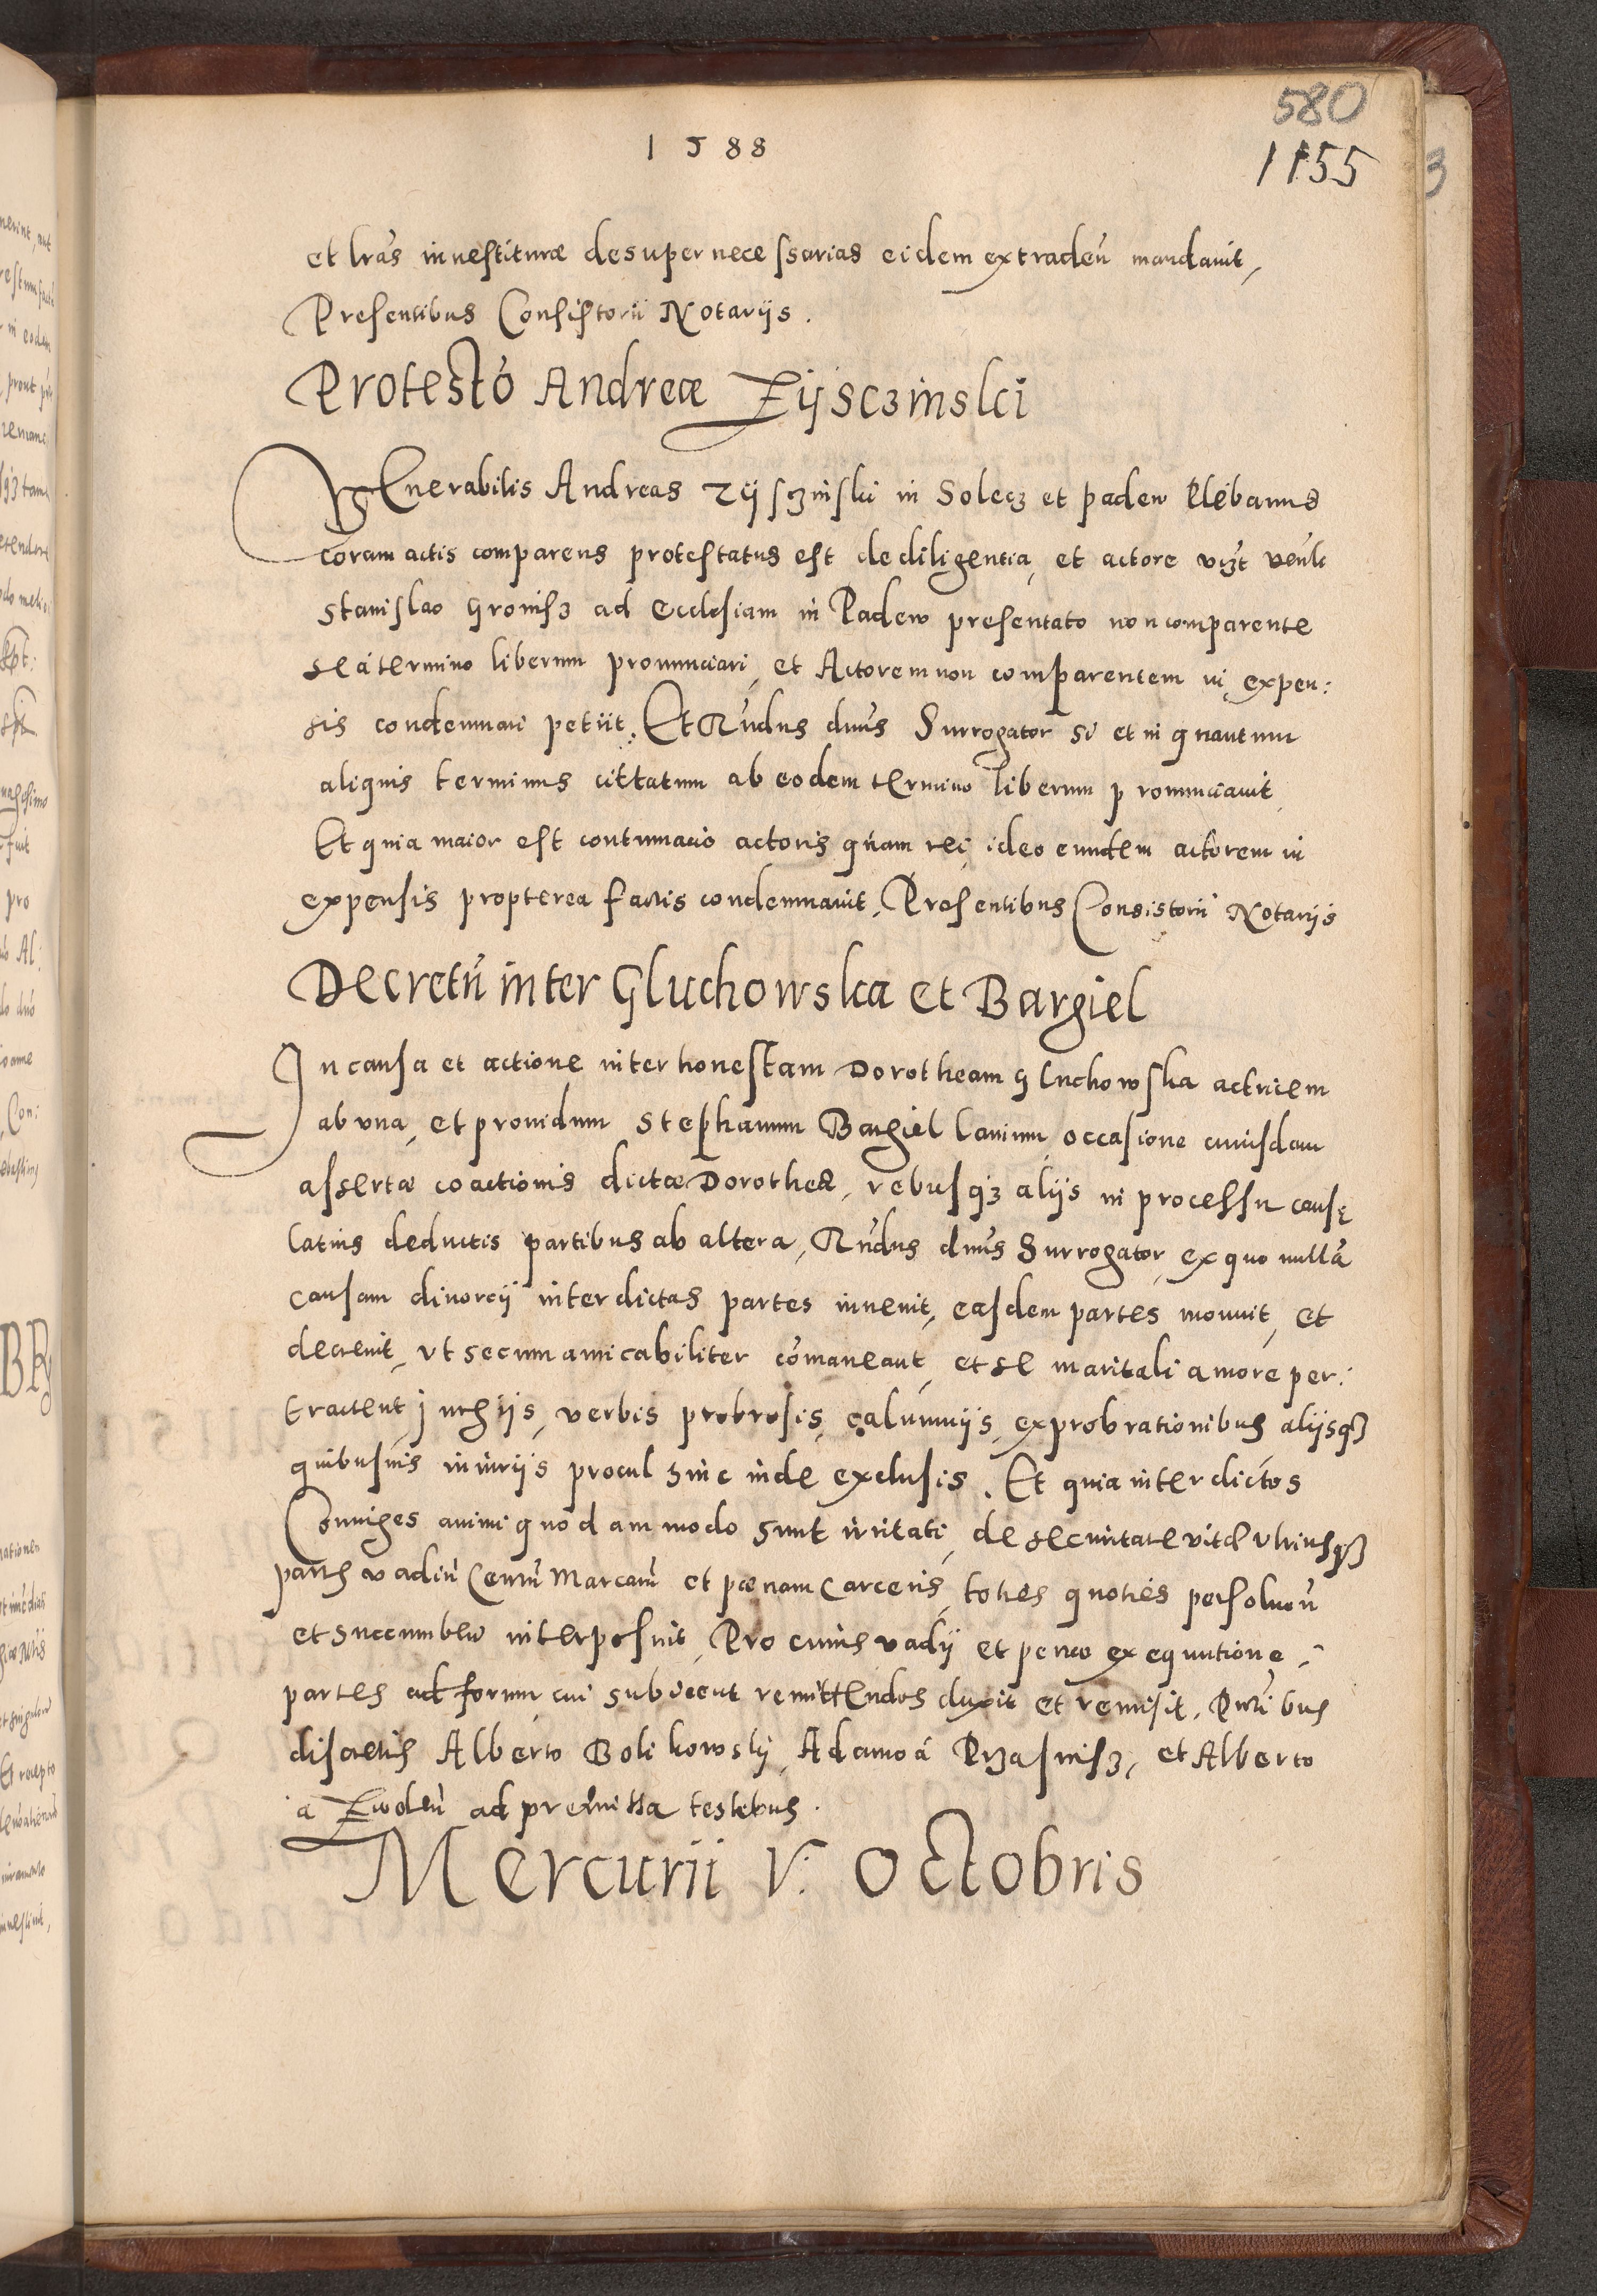 580
1 5 88
1155
et lrãs inuestituræ desuper necessarias eidem extradeñ mandauit,
Presentibus Consistorii Notariis.
Protestõ Andreæ Zÿsczinski
VEnerabilis Andreas Zÿsczinski in Solecz et padew Plebanus
coram actis comparens protestatus est de diligentia, et actore vizt veñli
Stanislao Gronisz ad Ecclesiam in Padew presentato non comparente
se à termino liberum pronunciari, et Actorem non comparentem in expen:
sis condemnari petiit. Et Rñdus dnũs Surrogator si et in quantum
aliquis terminus cittatum ab eodem termino liberum pronunciauit
Et quia maior est contumacio actoris quam rei, ideo eundem actorem in
expensis propterea factis condemnauit, Presentibus Consistorii Notariis
Decretũ inter Gluchowska et Bargiel
In causa et actione inter honestam Dorotheam Gluchowska actricem
ab vna, et prouidum Stephanum Bargiel lanium, occasione cuiusdam
assertæ coactionis dictæ Dorotheæ, rebusqz alijs in processu causę
latius deductis partibus ab altera, Rñdus dnũs Surrogator, ex quo nullã
causam diuorcÿ inter dictas partes inuenit, easdem partes monuit, et
decreuit, vt secum amicabiliter cõmaneant, et se maritali amore per:
tractent, jurgijs, verbis probrosis, calumnijs, exprobrationibus alijsqz
quibusuis iniurijs procul hinc inde exclusis. Et quia inter dictos
Coniuges animi quodammodo sunt irritati, de securitate vitæ vtriusqz
partis vadiũ Centũ Marcarũ et pœnam Carceris, toties quoties persoluen̄
et succumben̄ interposuit, Pro cuius vadÿ et penæ exequutione
partes ad forum cui subijcent remittendos duxit et remisit. Pñtibus
discretis Alberto Bolikowskÿ, Adamo á Przasnisz, et Alberto
a Zwoleñ ad premissa testibus.
Mercurii V. Octobris